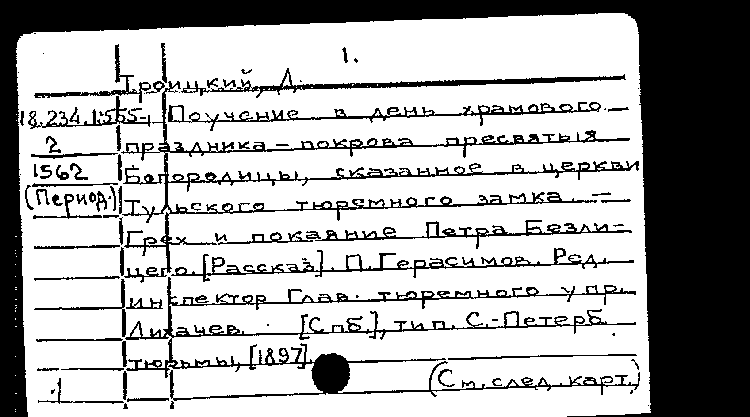 1.
Троицкий, Д.
18.234.1.555-, Поучение в день храмового
2 праздника – покрова пресвятыя
1562 Богородицы, сказанное в церкви
(Период.) Тульского тюремного замка. =
Грех и покаяние Петра Безли-
цего. [Рассказ]. П. Герасимов. Ред.
инспектор Глав. тюремного упр.
Лихачев. [Спб.], тип. С.-Петерб.
тюрьмы, [1897].
(См. след. карт.)